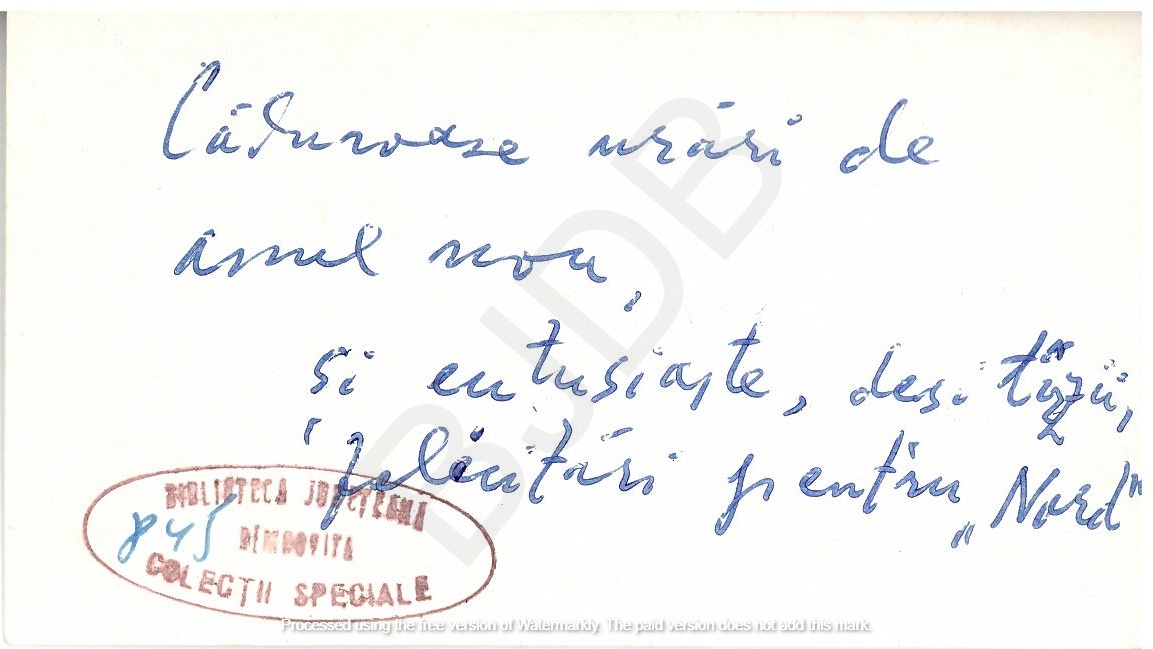 Călduroase urări de
anul nou,
și entusiaște, deși tîrzii,
felicitări pentru
„Nord"
BIBLIOTECA JUDEȚEANĂ
845 DÎMBOVIȚA
COLECȚII SPECIALE
BJDB
Processed using the free version of Watermarkly. The paid version does not add this mark.